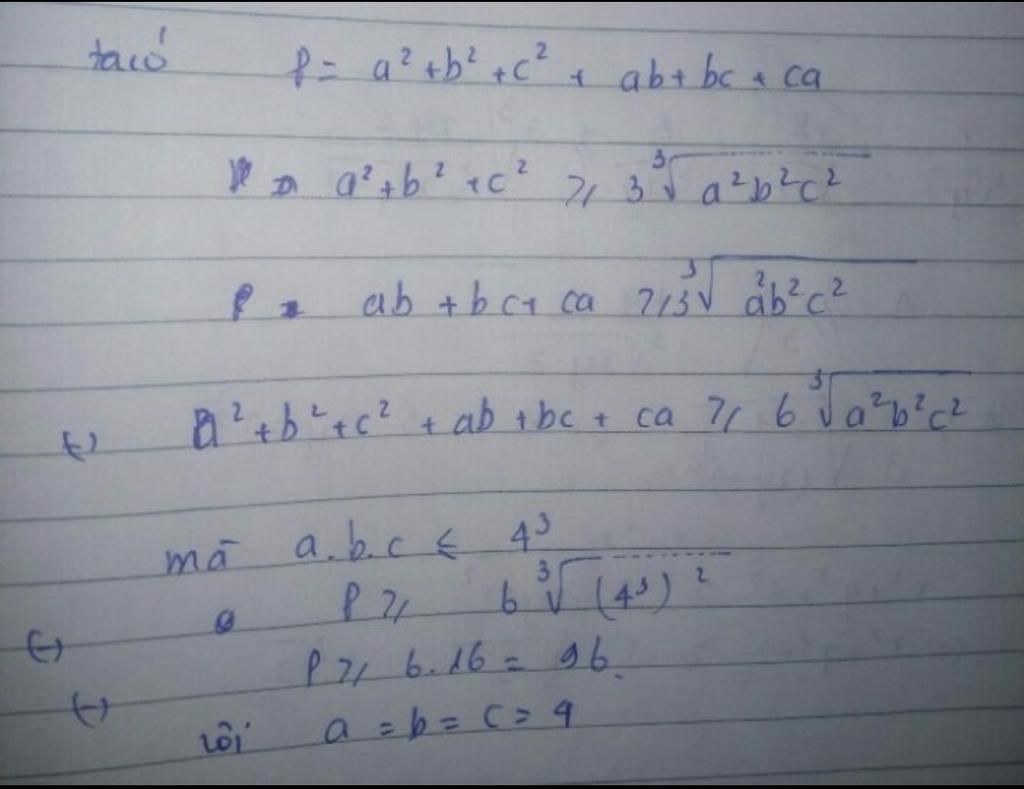 ta có P = a² + b² + c² + ab + bc + ca
a² + b² + c² ⩾ 3∛(a²b²c²)
ab + bc + ca ⩾ 3∛(a²b²c²)
(-) a² + b² + c² + ab + bc + ca ⩾ 6∛(a²b²c²)
mà a.b.c ⩽ 4³
(-) P ⩾ 6∛((4³)²)
(-) P ⩾ 6.16 = 96.
a = b = c = 4